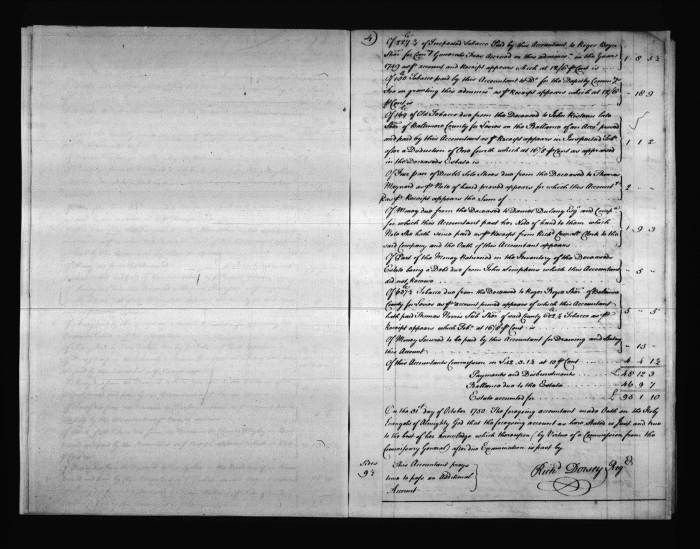 4
Of 227½ of Inspected Tobacco Paid by this Accountant to Roger Boyce
Sher. for Comry Generals Fees Accrued on this adminn in the Year
1749 as pr account and Receipt appears which at 12/6 pr Cent is 1 8 5½
Of 150 Tobacco paid by this Accountant to Do for the Deputy Commrys
Fee on granting this adminn as pr Receipt appears which at 12/6
pr Cent is - 18 9
Of Old Tobacco due from the Deceased to John Risteau late
Sher. of Baltimore County for Levies on the Ballance of an Acct proved
and paid by this Accountant as pr Receipt appears in Inspected Tobo
after a Deduction of One fourth which at 16/8 pr Cent as appraised
in the Deceaseds Estate is 1 1 2
Of four pair of Double Sole Shoes due from the Deceased to Thomas
Maynard as pr Note of hand proved appears for which this Accountt
Receipt appears the Sum of 2 - -
Of Money due from the Deceased to Dennes Dulany Esqr and Compa
for which this Accountant past her Note of hand to them which
Note She hath since paid as pr Receipt from Richd Clerk to the
said Company and the Oath of this Accountant appears 1 9 3
Of Part of the Money Returned in the Inventory of the Deceaseds
Estate being a Debt due from John Simpkins which this Accountant
did not Receive - 5 -
Of Tobacco due from the Deceased to Roger Boyce Sher. of Baltimore
County for Levies as pr account proved appears of which this Accountant
hath paid Thomas Norris Sub Sher. of said County Tobacco as pr
Receipt appears which Tobo at 16/8 pr Cent is 5 - 5
Of Money Allowed to be paid by this Accountant for Drawing and Stating
this Account - 15 -
Of this Accountants Commission on £42.3.1½ at 10 pr Cent 4 4 1½
Payments and Disbursements £ 48 12 3
Ballance due to the Estate 46 9 7
Estate accounted for £ 95 1 10
On the 31st day of October 1750 The foregoing accountant made Oath on the Holy
Evangels of Almighty God that the foregoing account as here Stated is Just and true
to the best of her knowledge which thereupon (by Virtue of a Commission from the
Commissary General) after due Examination is past by
Sides
9½
This Accountant prays
time to pass an Additional
Account
Richd Dorsey Regr